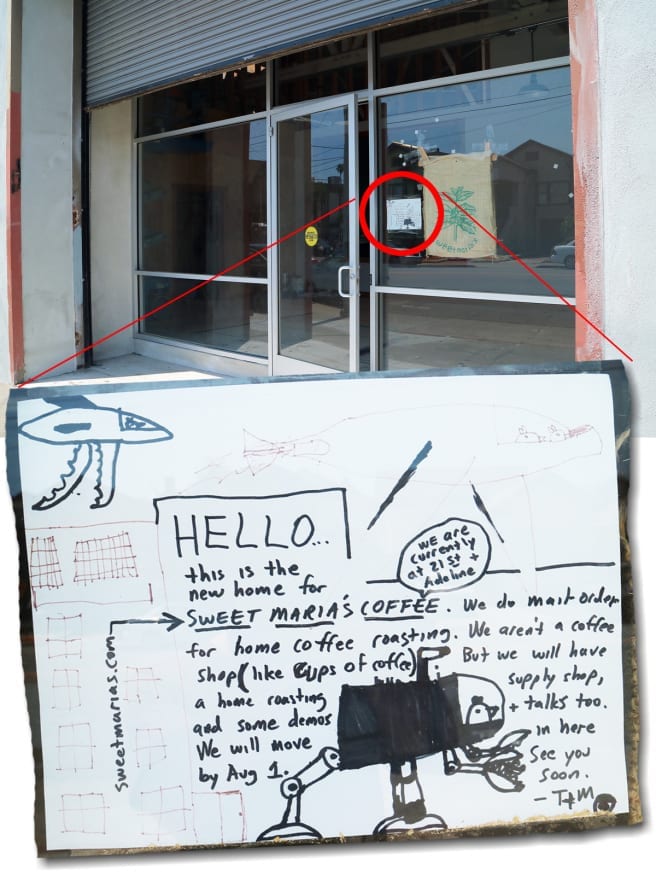 sweetmaria's
HELLO...
this is the
new home for
SWEET MARIA'S COFFEE. We do mail order
for home coffee roasting. We aren't a coffee
shop (like cups of coffee). But we will have
a home roasting supply shop,
and some demos + talks too.
We will move in here
by Aug 1. See you
soon.
- T+M
we are
currently
at 21st +
Adeline
sweetmarias.com